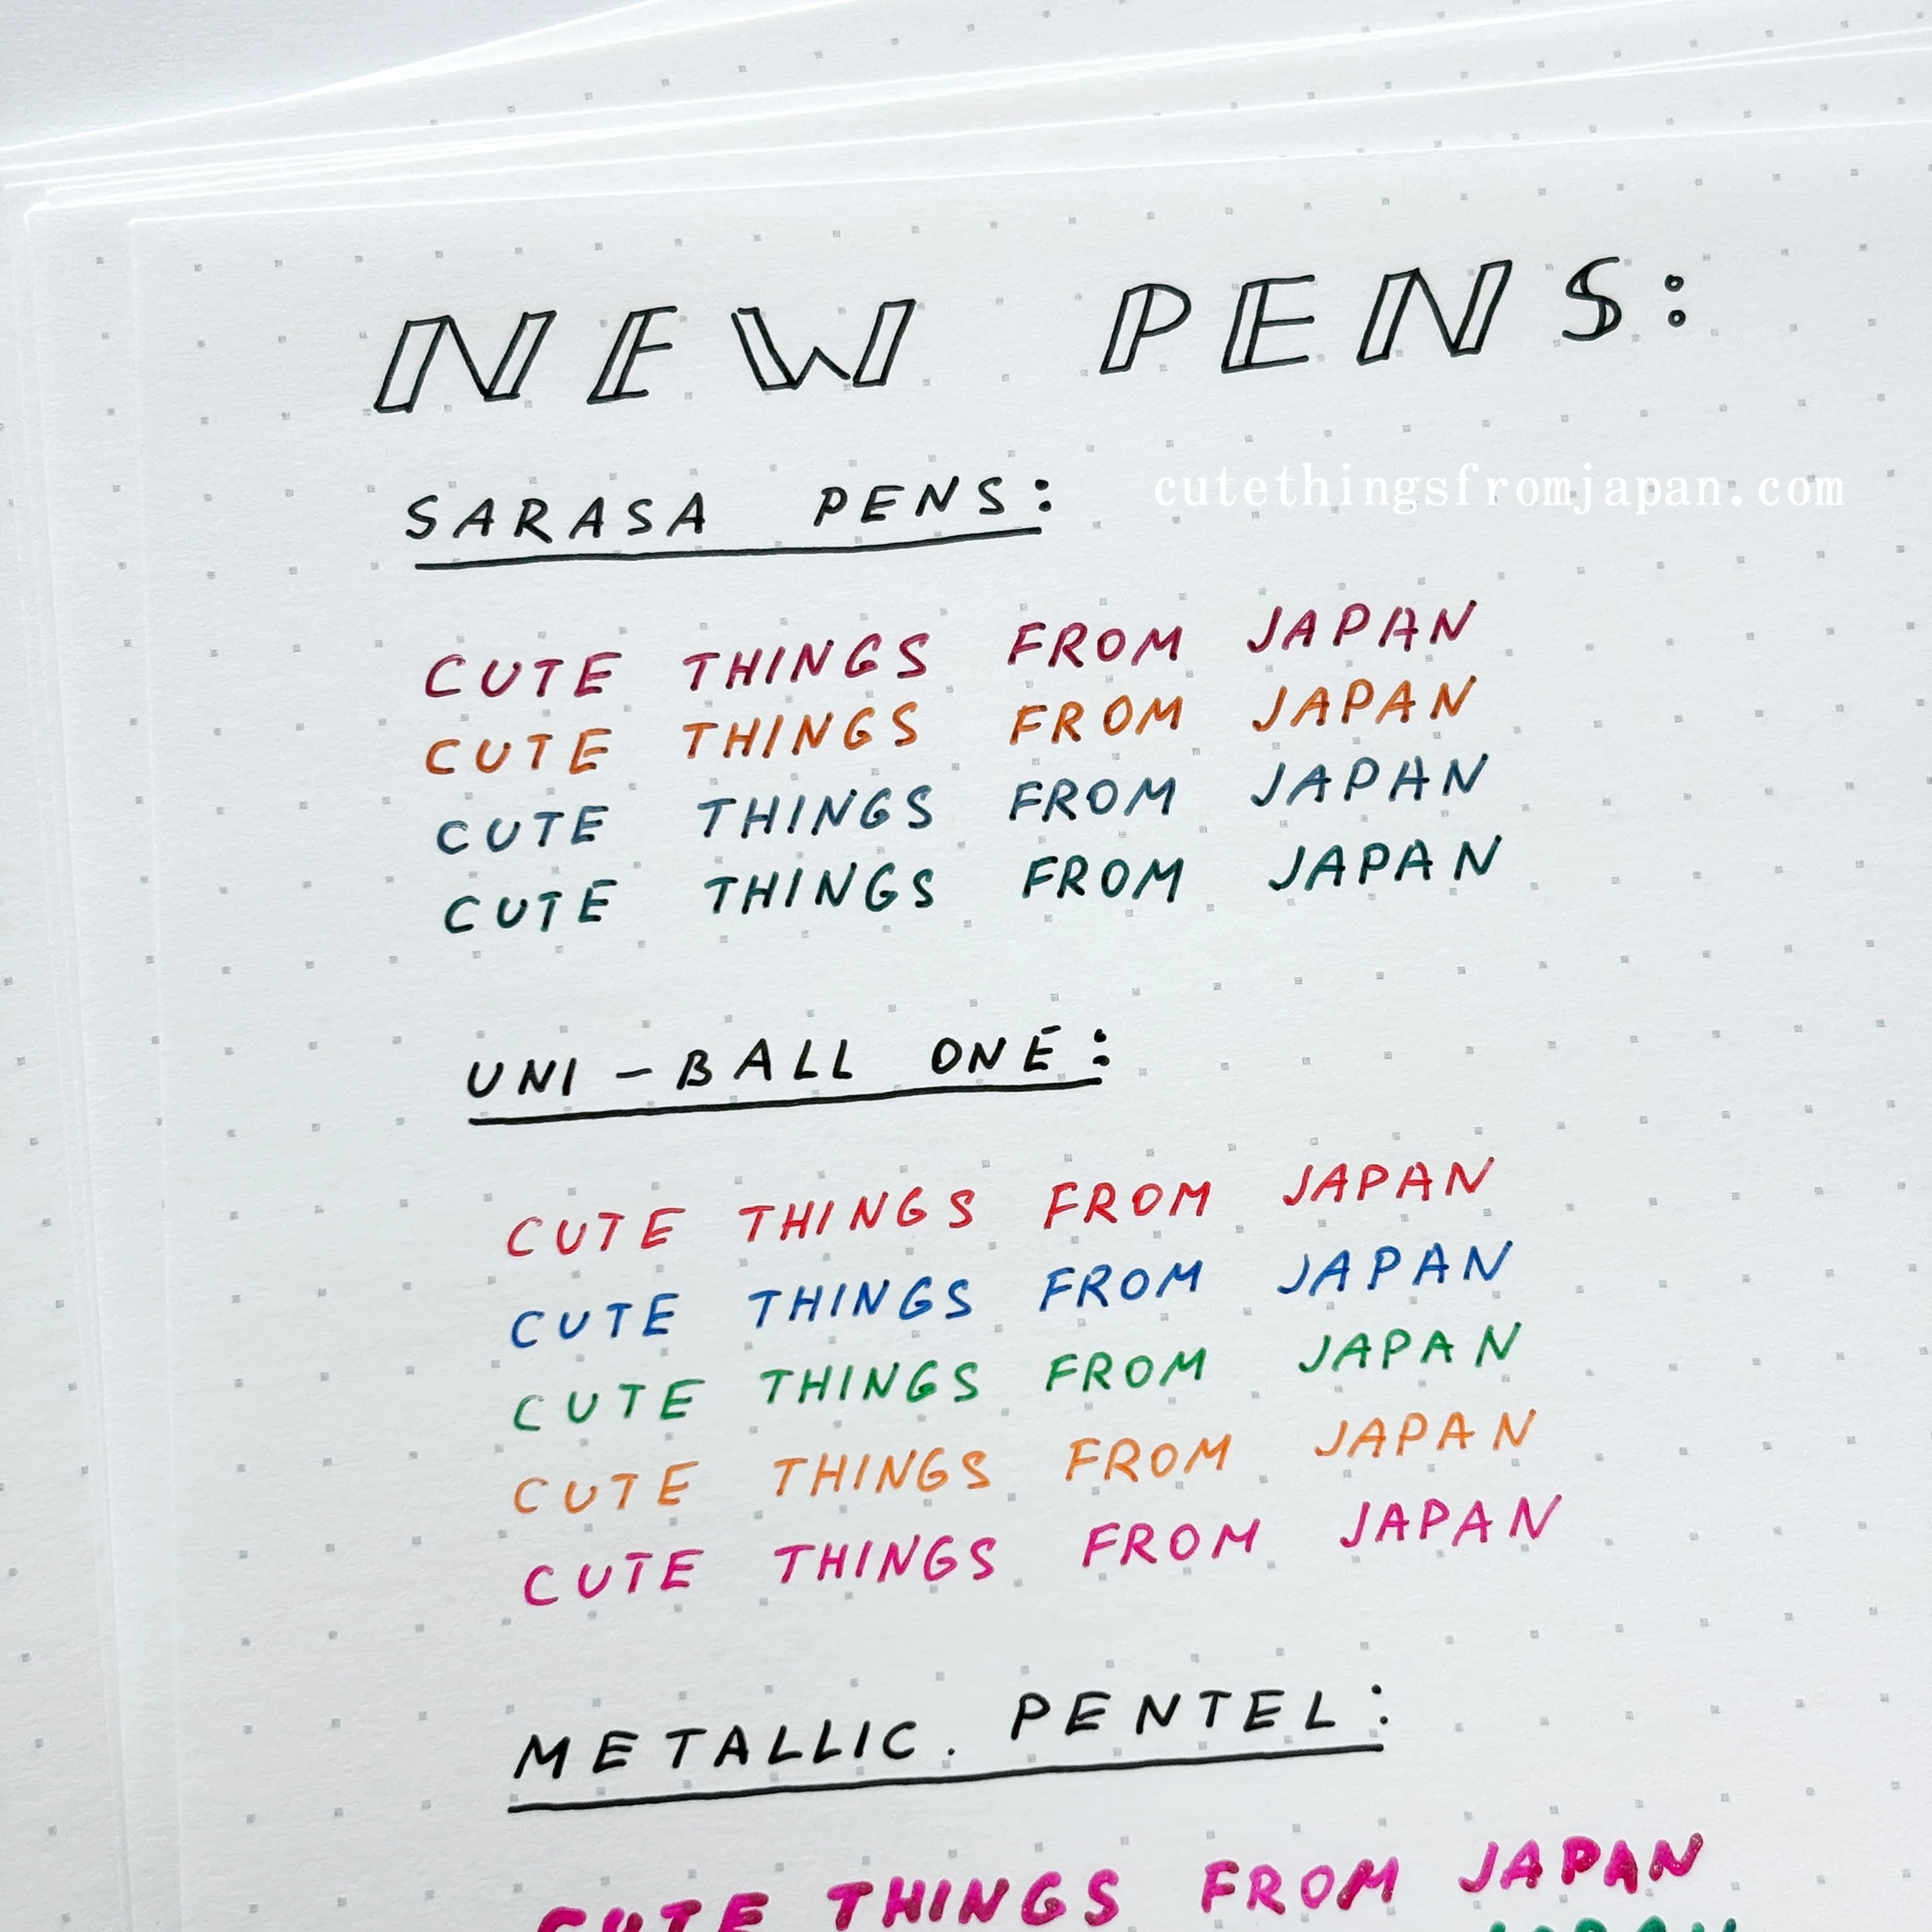 NEW PENS:
SARASA PENS:
cutethingsfromjapan.com
CUTE THINGS FROM JAPAN
CUTE THINGS FROM JAPAN
CUTE THINGS FROM JAPAN
CUTE THINGS FROM JAPAN
UNI-BALL ONE:
CUTE THINGS FROM JAPAN
CUTE THINGS FROM JAPAN
CUTE THINGS FROM JAPAN
CUTE THINGS FROM JAPAN
CUTE THINGS FROM JAPAN
METALLIC PENTEL:
CUTE THINGS FROM JAPAN
JAPAN